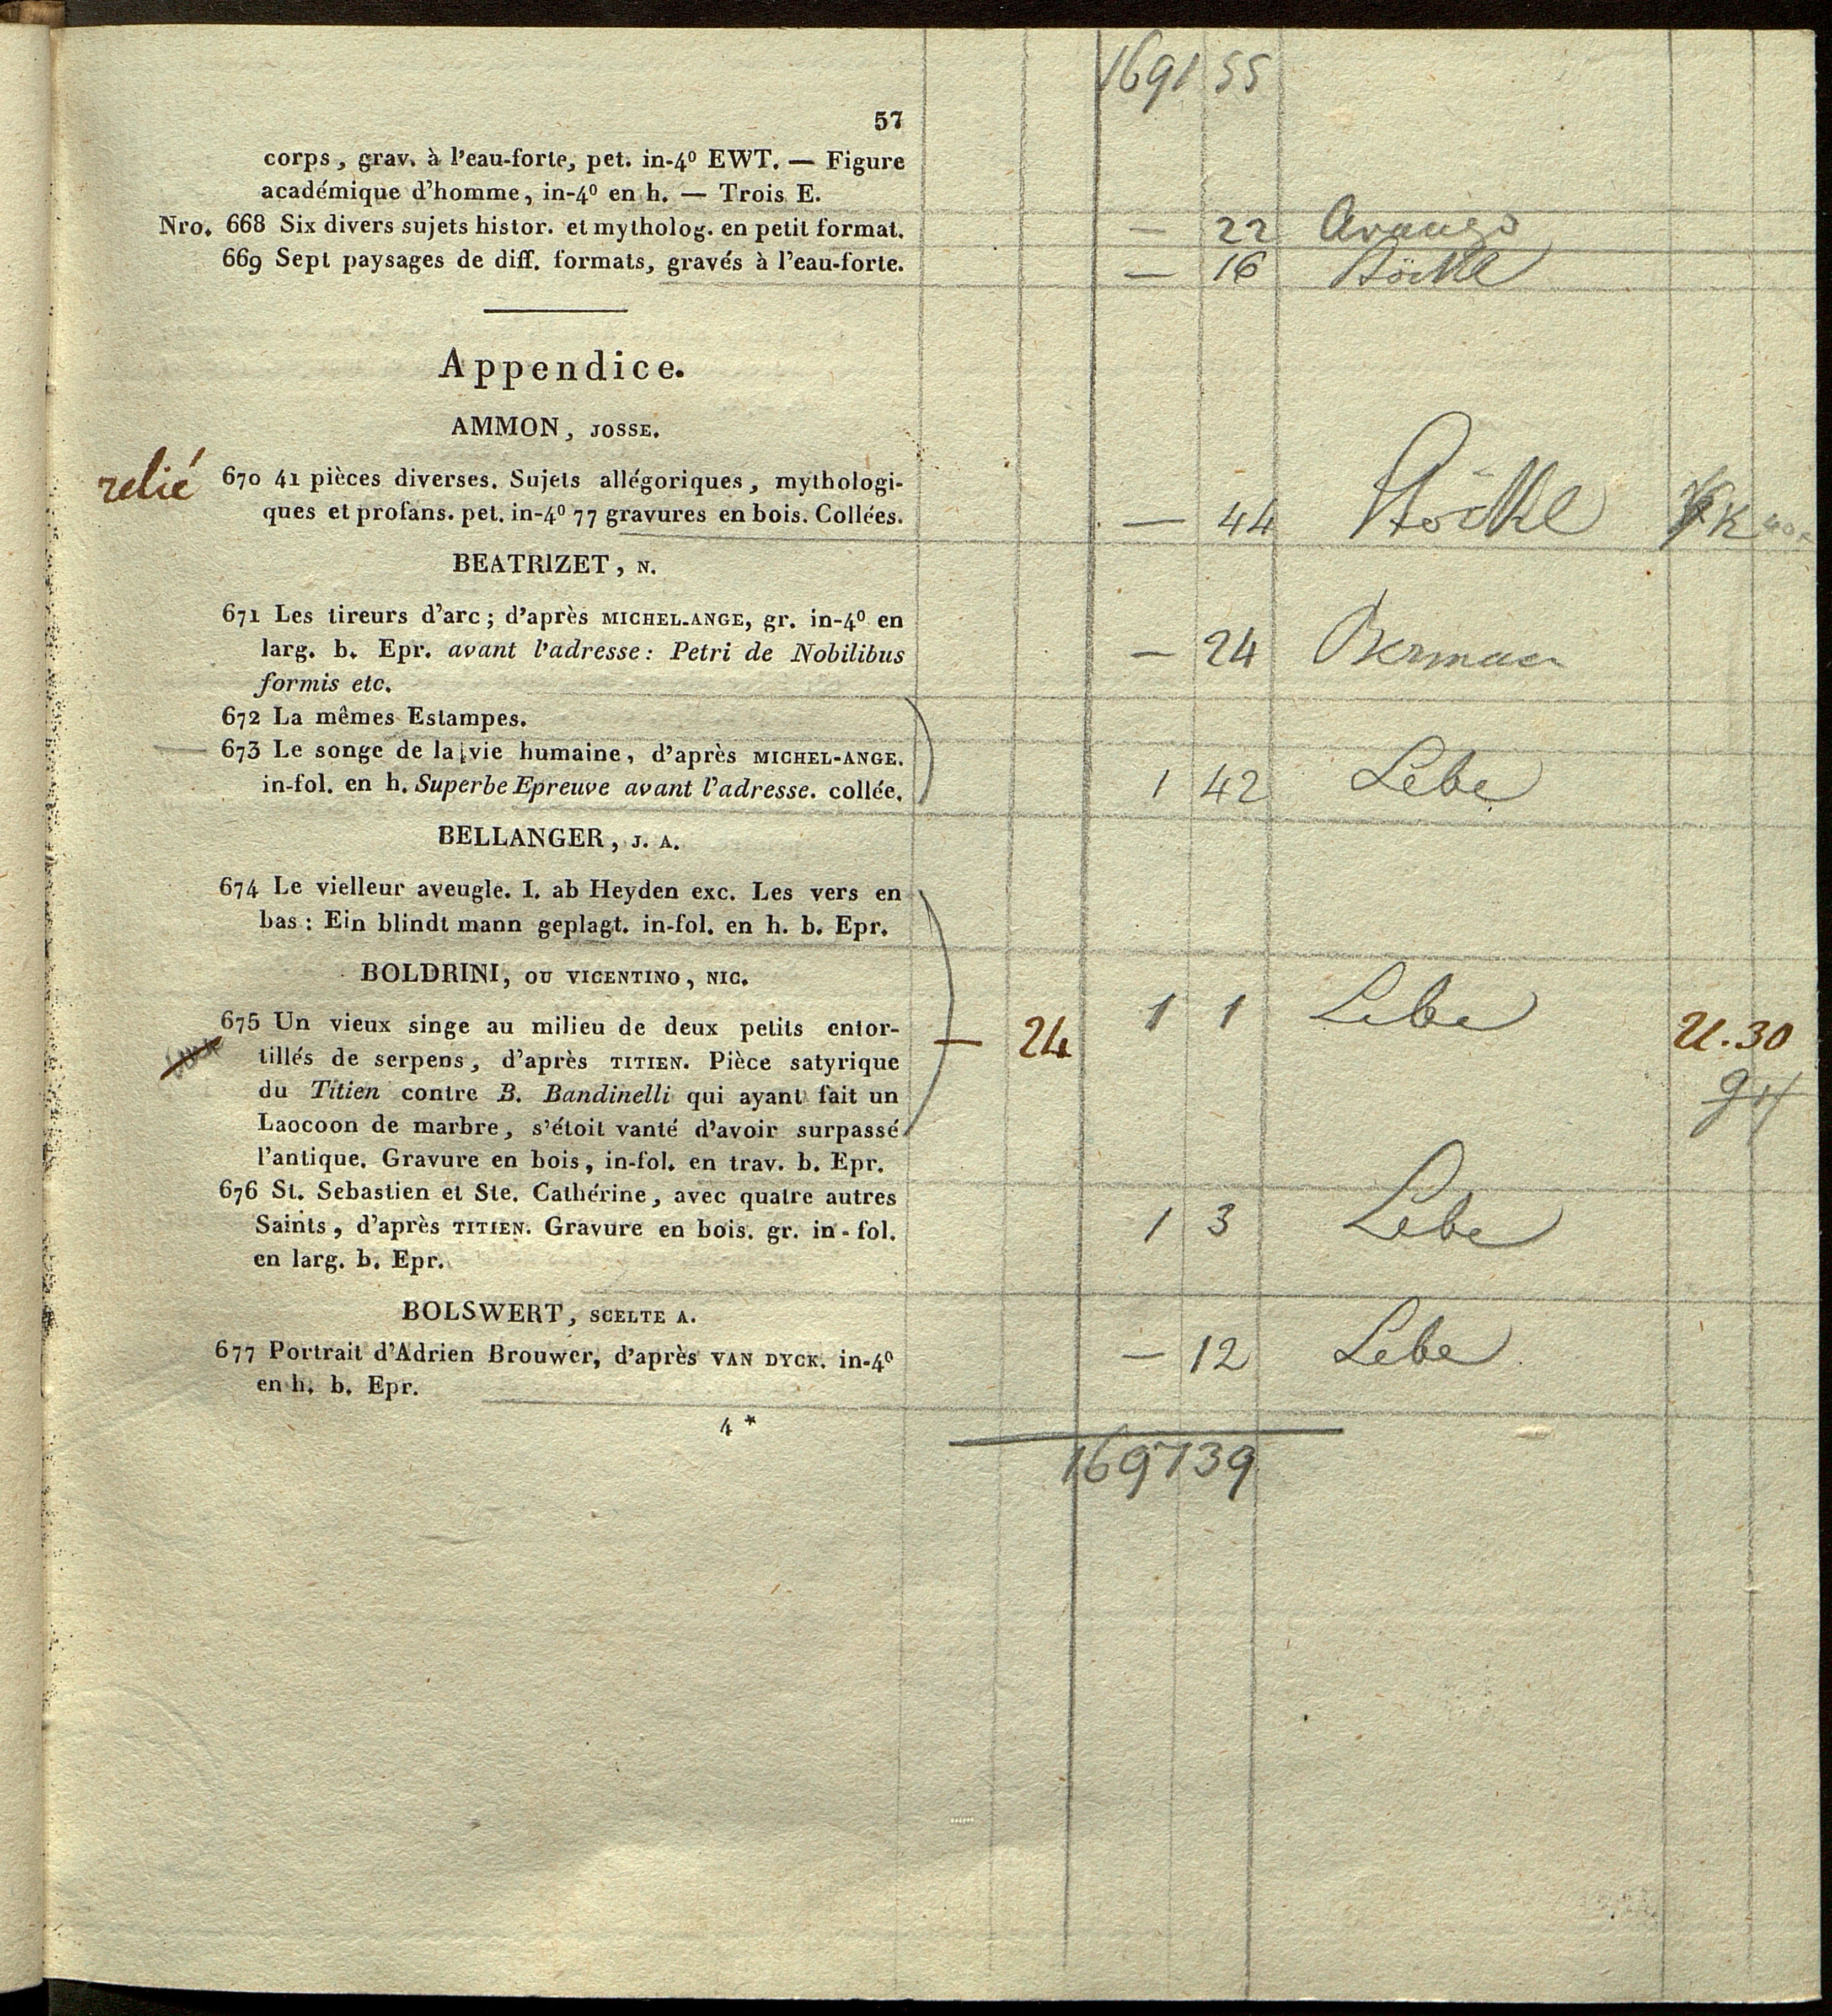 1691 55
57
corps, grav. à l'eau-forte, pet. in-4º EWT. — Figure
académique d'homme, in-4º en h. — Trois E.
Nro. 668 Six divers sujets histor. et mytholog. en petit format. — 22
669 Sept paysages de diff. formats, gravés à l'eau-forte. — 16 Stöckl
Appendice.
AMMON, JOSSE.
relié 670 41 pièces diverses. Sujets allégoriques, mythologi-
ques et profans. pet. in-4º 77 gravures en bois. Collées. — 44 Stöckl
BEATRIZET, N.
671 Les tireurs d'arc; d'après MICHEL-ANGE, gr. in-4º en
larg. b. Epr. avant l'adresse: Petri de Nobilibus — 24
formis etc.
672 La mêmes Estampes.
673 Le songe de la vie humaine, d'après MICHEL-ANGE.
in-fol. en h. Superbe Epreuve avant l'adresse. collée. 1 42 Lebe
BELLANGER, J. A.
674 Le vielleur aveugle. I. ab Heyden exc. Les vers en
bas: Ein blindt mann geplagt. in-fol. en h. b. Epr.
BOLDRINI, OU VICENTINO, NIC.
675 Un vieux singe au milieu de deux petits entor- — 24 1 1 Lebe 2l.30
tillés de serpens, d'après TITIEN. Pièce satyrique
du Titien contre B. Bandinelli qui ayant fait un
Laocoon de marbre, s'étoit vanté d'avoir surpassé
l'antique. Gravure en bois, in-fol. en trav. b. Epr.
676 St. Sebastien et Ste. Cathérine, avec quatre autres
Saints, d'après TITIEN. Gravure en bois. gr. in-fol. 1 3 Lebe
en larg. b. Epr.
BOLSWERT, SCELTE A.
677 Portrait d'Adrien Brouwer, d'après VAN DYCK. in-4º — 12 Lebe
en h. b. Epr.
4 *
1697 39